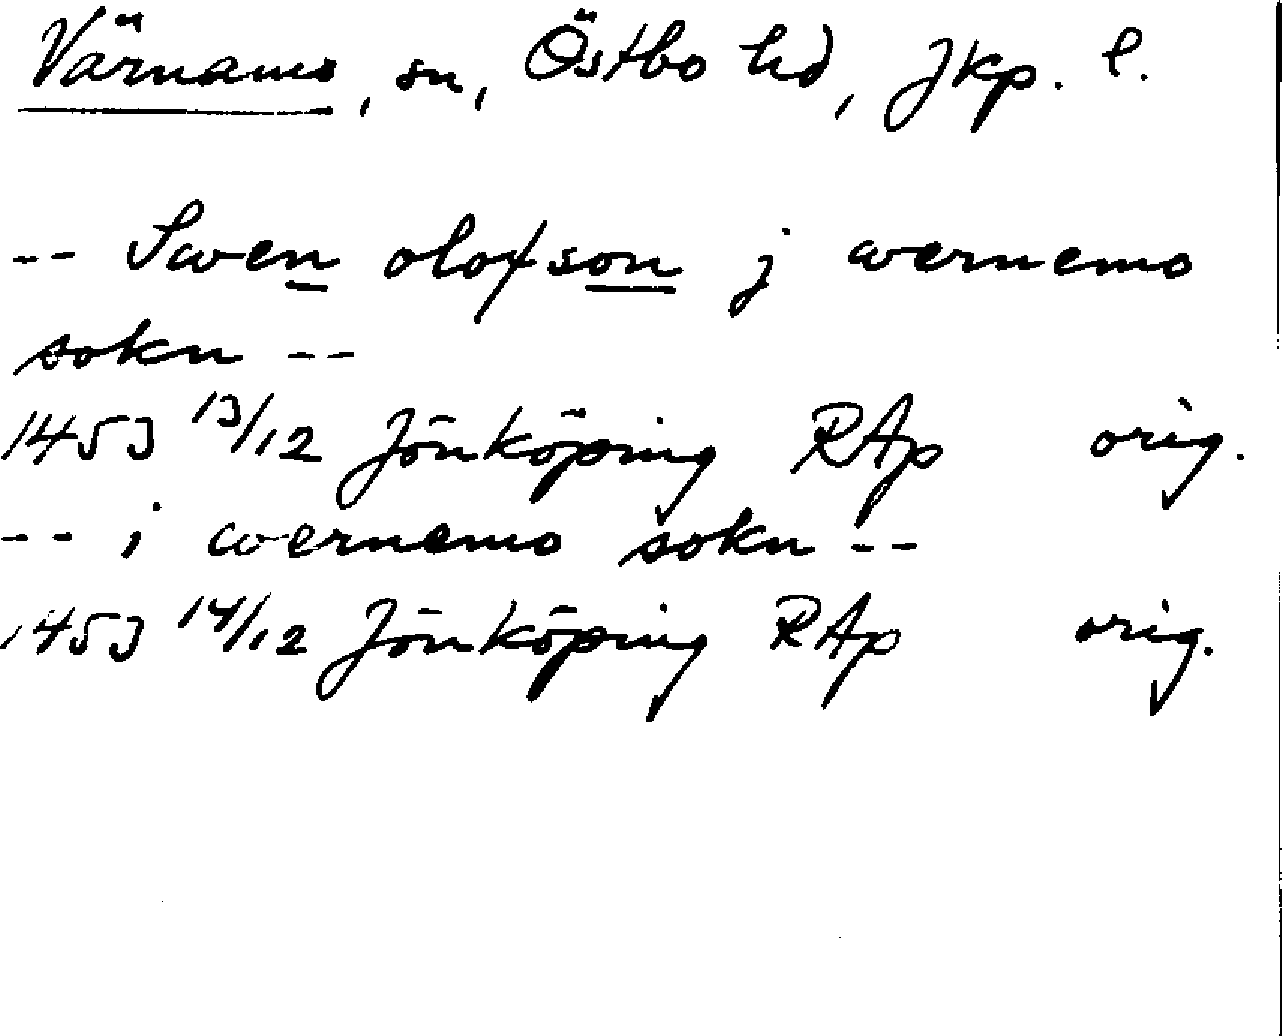 Värnamo, sn, Östbo hd, Jkp. l.
-- Swen olofson j wernemo
sokn --
1453 13/12 Jönköping RAp orig.
-- i wernemo sokn --
1453 14/12 Jönköping RAp orig.